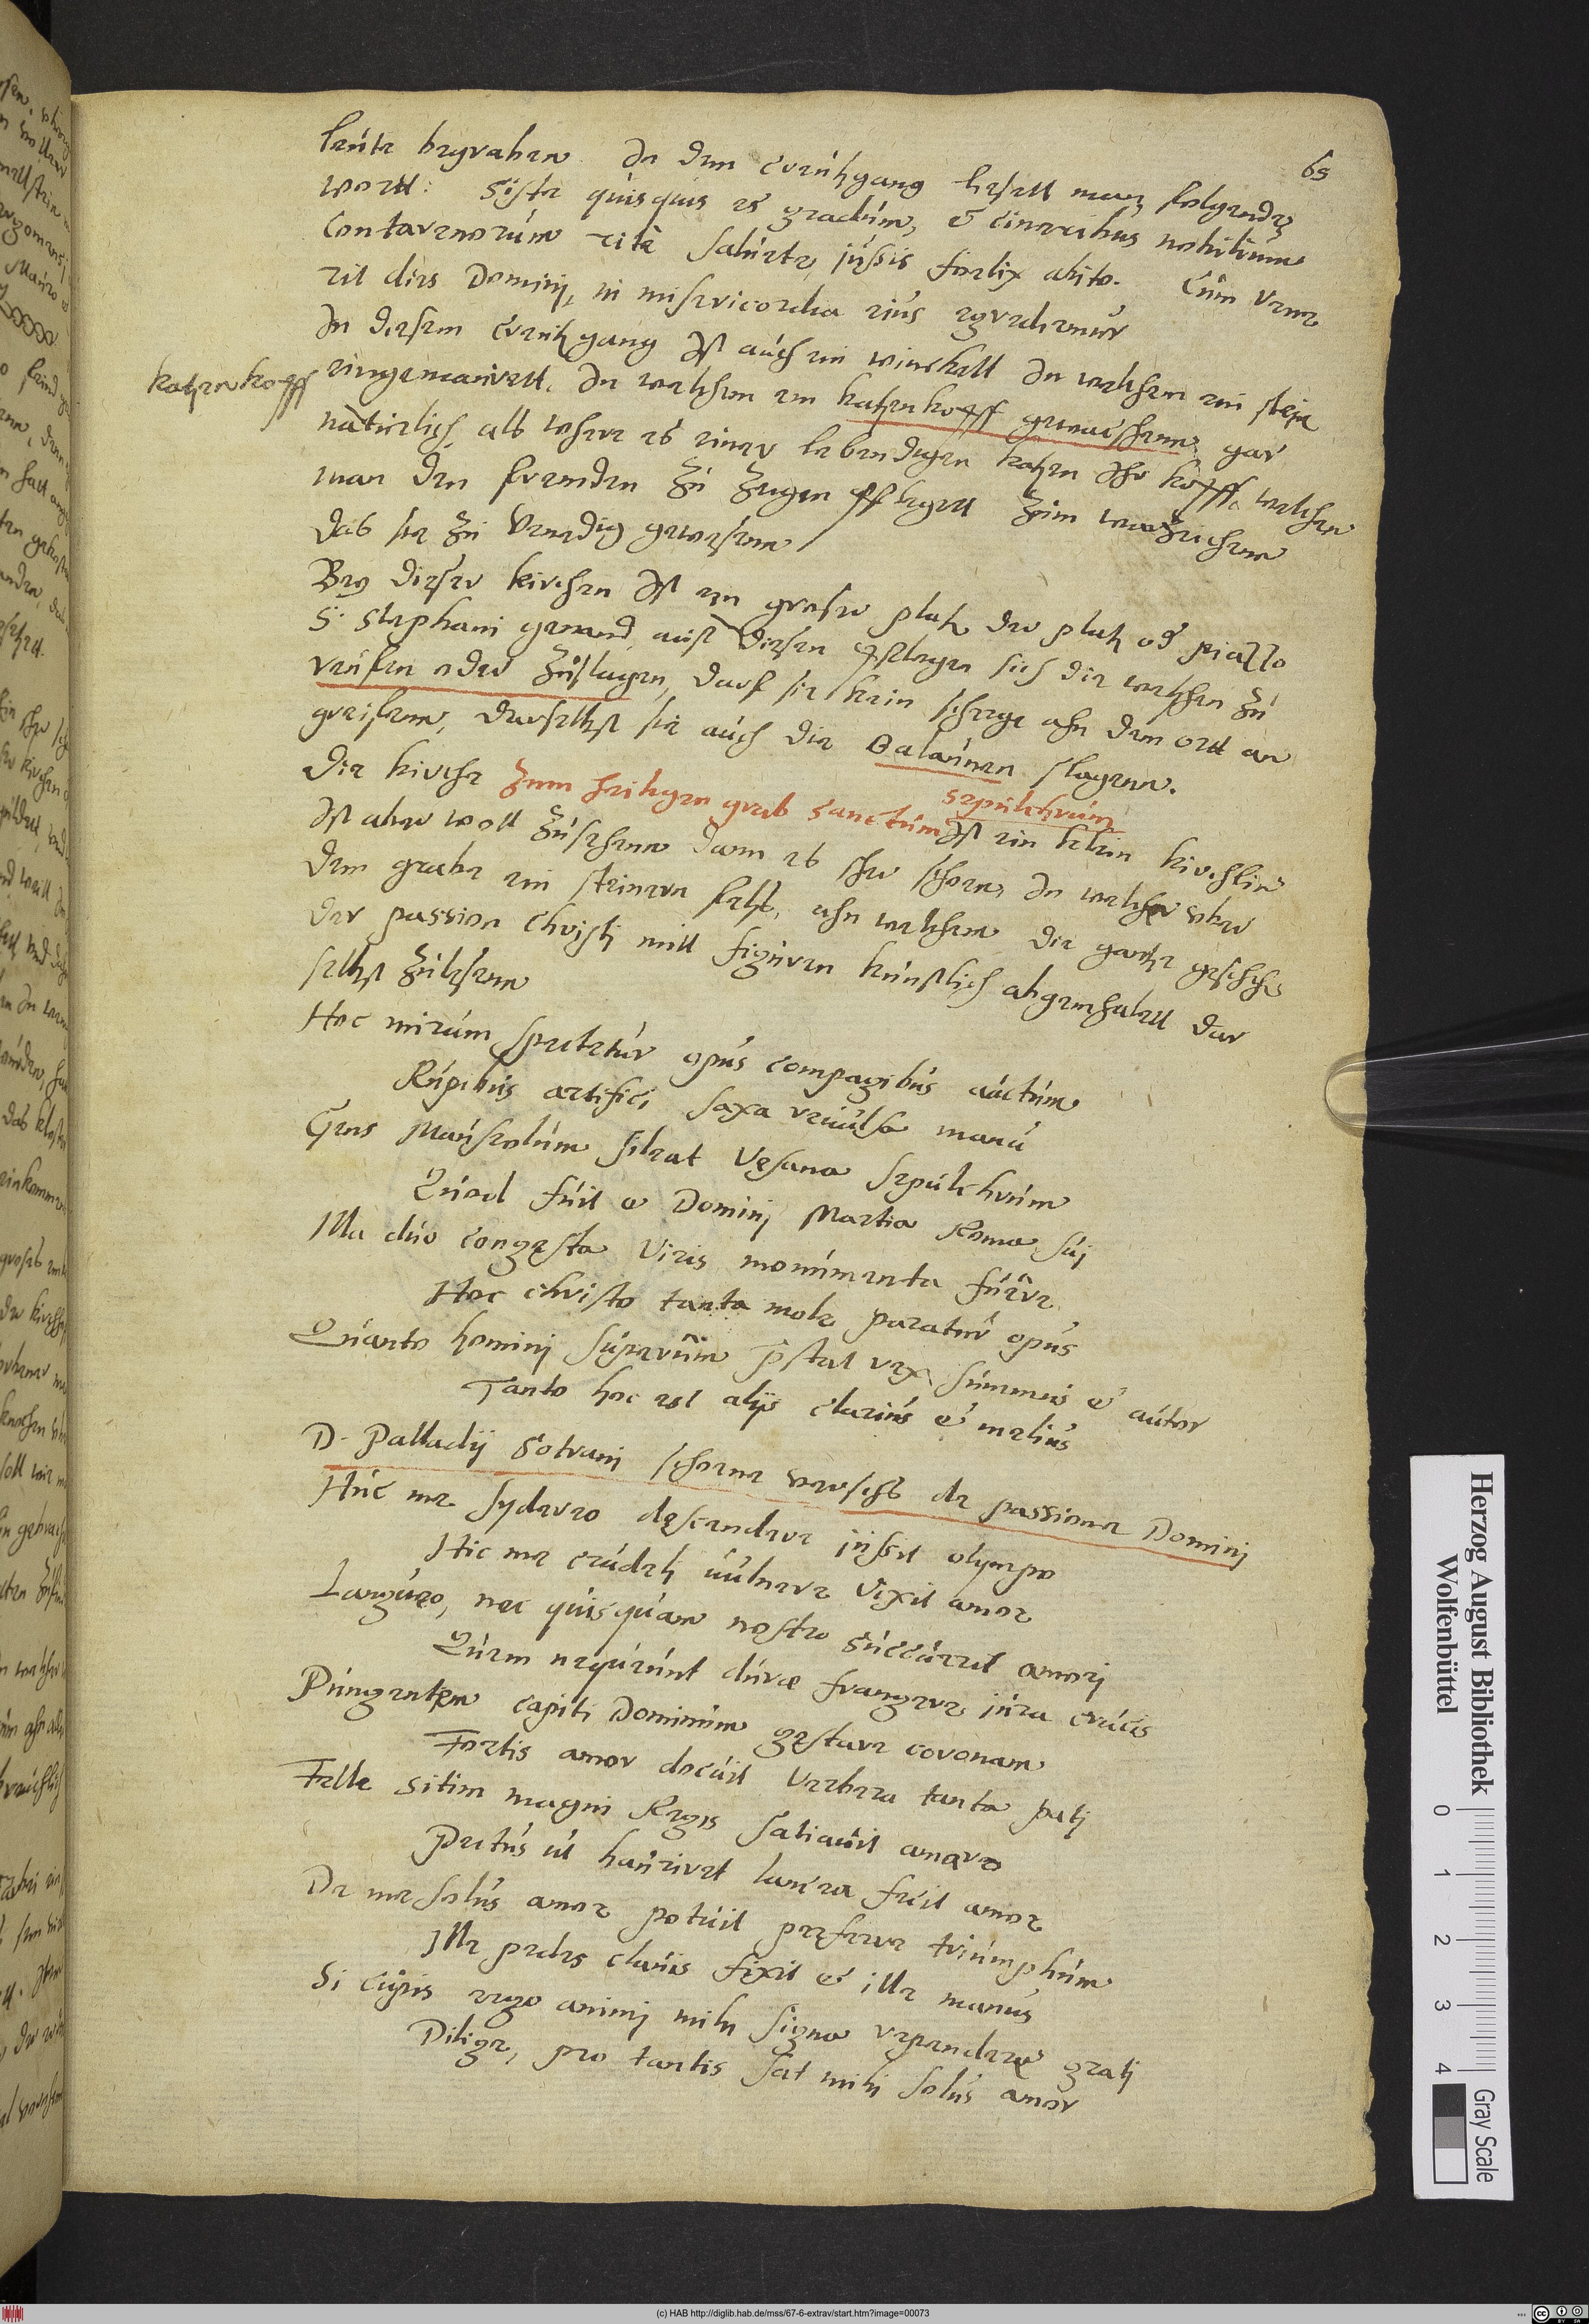 65
leute begraben. In dem Creutzgang lesett man folgende
wortt: Siste quisquis es gradum, & cineribus nobilium
Contarenorum rite salute, jussis foelix abito. Cum Vene
rit dies Dominj, in misericordia eius egrediemur
In diesem Creutzgang Ist auch ein winckell In welchem ein stein
katzenkopff
eingemauret. In welchem ein katzenkopff gewachsenn, gar
natirlich, alß wehre es einer lebendigen katzen Ihr kopff, welchen
man den fremden zu zeigen pfleget zum warzeichenn
daß sie zu Venedig gewesenn
Bey dieser kirchen Ist ein groser platz der platz od piazzo
S. Stephani genand, auff diesen pflegen sich die welschen zu
reufen oder zuslagen, darf sie kein scherge ahn dem ortt an
greifenn, daselbst sie auch die Balaunen slagenn.
sepulchrum
Die kirche zum heiligen grab sanctum Ist ein klein kirchlin
Ist aber woll zusehenn dann es sehr schoen, In welcher uber
dem grabe ein steinern felß, ahn welchem die gantze geschicht
der passion Christj mitt figuren kunstlich abgemhalett dar
selbst zulesenn
Hoc mirum spectetur opus compagibus auctum
Rupibus artifici saxa reuulsa manu
Gens Mauseolum sileat Vesana sepulchrum
Quod fuit & Dominj Martia Roma suj
Illa duo congesta Viris monumenta fuere
Hoc Christo tanta mole paratur opus
Quanto hominj superum pstat rex summus & autor
Tanto hoc est alijs clarius & melius
D. Palladij Sorani schoene versche de passione Dominj
Huc me sydereo descendere jussit olympo
Hic me crudeli uulnere Vixit amor
Langueo, nec quisquam nostro succurrit amorj
Quem nequeunt durae frangere jura crucis
Pungentem capiti Dominum gestare coronam
Fortis amor docuit Verbera tanta patj
Felle sitim magni Regis satiauit amaro
Pectus ut hauriret lancea fecit amor
De me solus amor potuit praeferre triumphum
Ille pedes clauis fixit & ille manus
Si cupis ergo animj mihi signa rependere gratj
Dilige, pro tantis sat mihi solus amor
Herzog August Bibliothek
Wolfenbüttel
0 1 2 3 4
Gray Scale
(c) HAB http://diglib.hab.de/mss/67-6-extrav/start.htm?image=00073